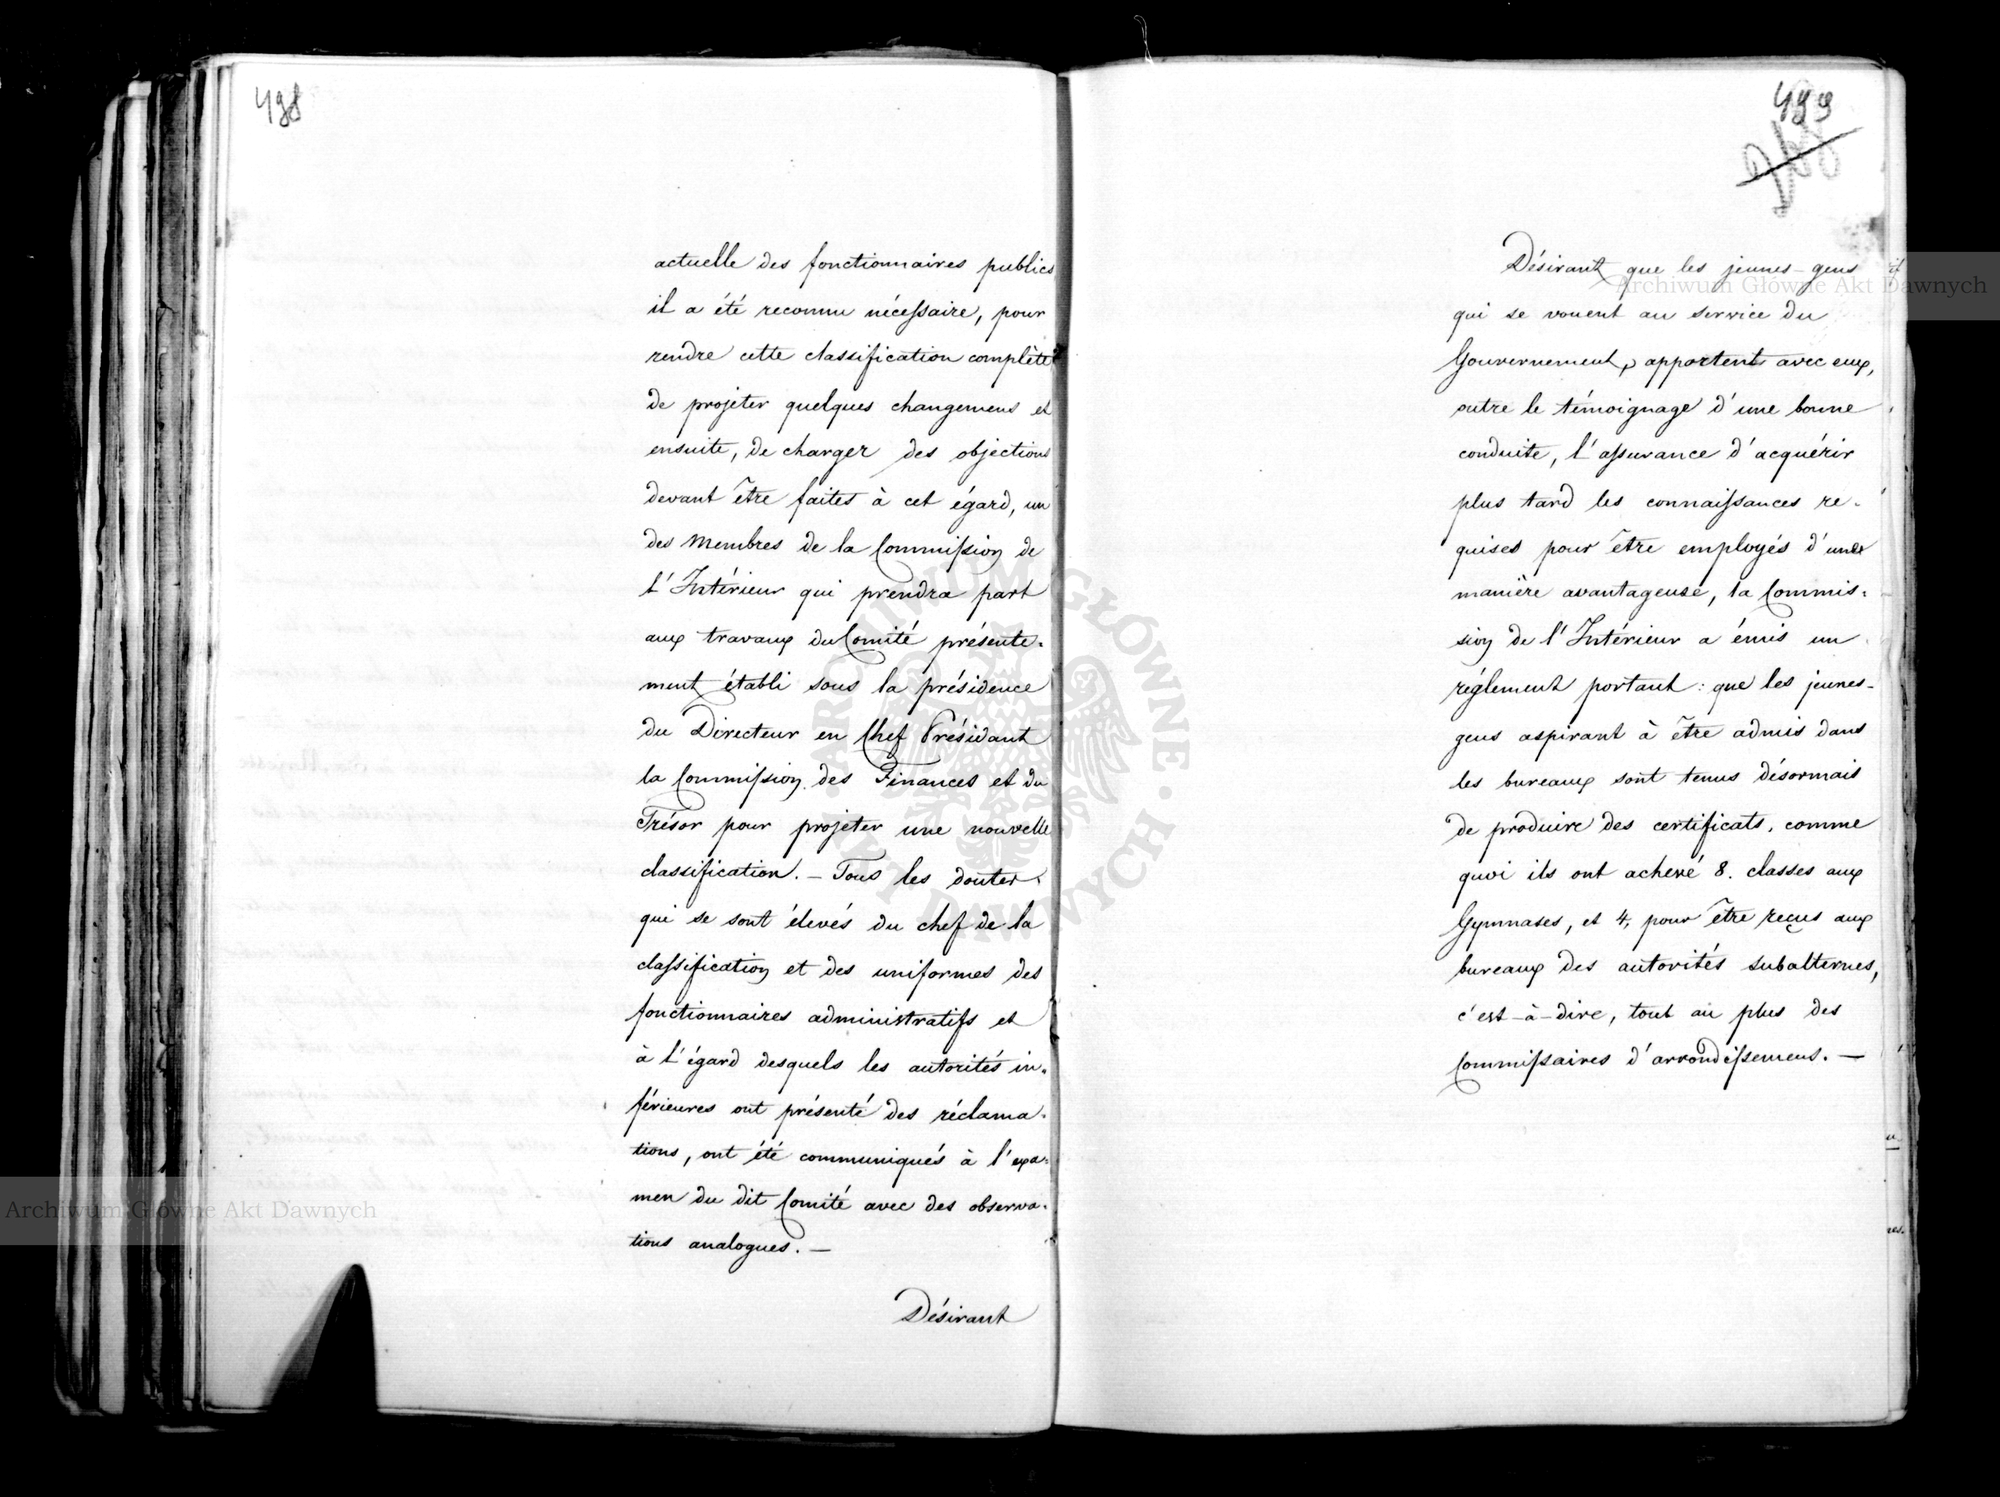 498
actuelle des fonctionnaires publics
il a été reconnu nécessaire, pour
rendre cette classification complète
de projeter quelques changemens et
ensuite, de charger des objections
devant être faites à cet égard, un
des Membres de la Commission de
l'Intérieur qui prendra part
aux travaux du Comité présente-
ment établi sous la présidence
du Directeur en Chef Présidant
la Commission des Finances et du
Trésor pour projeter une nouvelle
classification. — Tous les doutes
qui se sont élevés du chef de la
classification et des uniformes des
fonctionnaires administratifs et
à l'égard desquels les autorités in-
férieures ont présenté des réclama-
tions, ont été communiqués à l'exa-
men du dit Comité avec des observa-
tions analogues. —
Désirant
499
Désirant que les jeunes-gens
qui se vouent au service du
Gouvernement, apportent avec eux,
outre le témoignage d'une bonne
conduite, l'assurance d'acquérir
plus tard les connaissances re-
quises pour être employés d'une
manière avantageuse, la Commis-
sion de l'Intérieur a émis un
réglement portant: que les jeunes-
gens aspirant à être admis dans
les bureaux sont tenus désormais
de produire des certificats, comme
quoi ils ont achevé 8. classes aux
Gymnases, et 4, pour être reçus aux
bureaux des autorités subalternes,
c'est-à-dire, tout au plus des
Commissaires d'arrondissemens. —
Archiwum Główne Akt Dawnych
Archiwum Główne Akt Dawnych
ARCHIWUM GŁÓWNE · AKT DAWNYCH ·